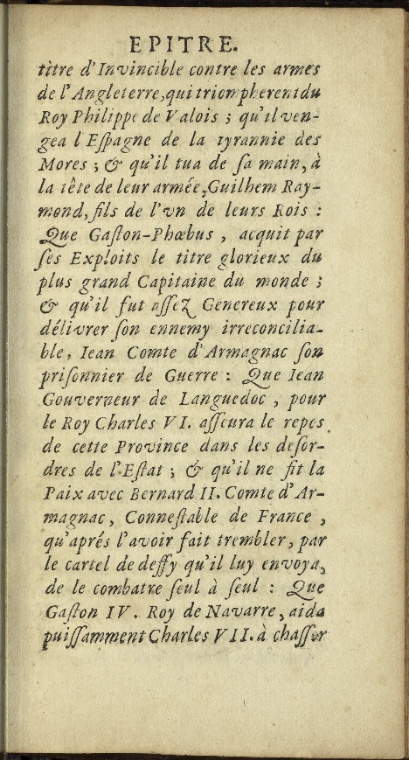 EPITRE.
titre d'Invincible contre les armes
de l'Angleterre, qui trionpherent du
Roy Philippe de Valois ; qu'il ven-
gea l Eſpagne de la tyrannie des
Mores ; & qu'il tua de ſa main, à
la tête de leur armée, Guilhem Ray-
mond, fils de l'vn de leurs Rois :
Que Gaſton-Phœbus , acquit par
ſes Exploits le titre glorieux du
plus grand Capitaine du monde ;
& qu'il fut aſſez Genereux pour
délivrer ſon ennemy irreconcilia-
ble, Iean Comte d'Armagnac ſon
priſonnier de Guerre : Que Iean
Gouverneur de Languedoc , pour
le Roy Charles VI. aſſeura le repos
de cette Province dans les deſor-
dres de l'Eſtat ; & qu'il ne fit la
Paix avec Bernard II. Comte d'Ar-
magnac, Conneſtable de France ,
qu'aprés l'avoir fait trembler, par
le cartel de deffy qu'il luy envoya,
de le combatre ſeul à ſeul : Que
Gaſton IV. Roy de Navarre, aida
puiſſamment Charles VII. à chaſſer